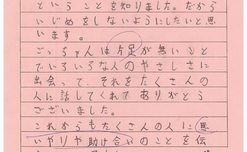 ということを知りました。だから
いじめをしないようにしたいと思
います。
ごっちゃんは片足が無い
ていろいろな人のやさしさに
出会って、それをたくさんの
人に話してくれてありがとう
ございました。
これからもたくさんの人に思
いやりや助け合いのことを伝